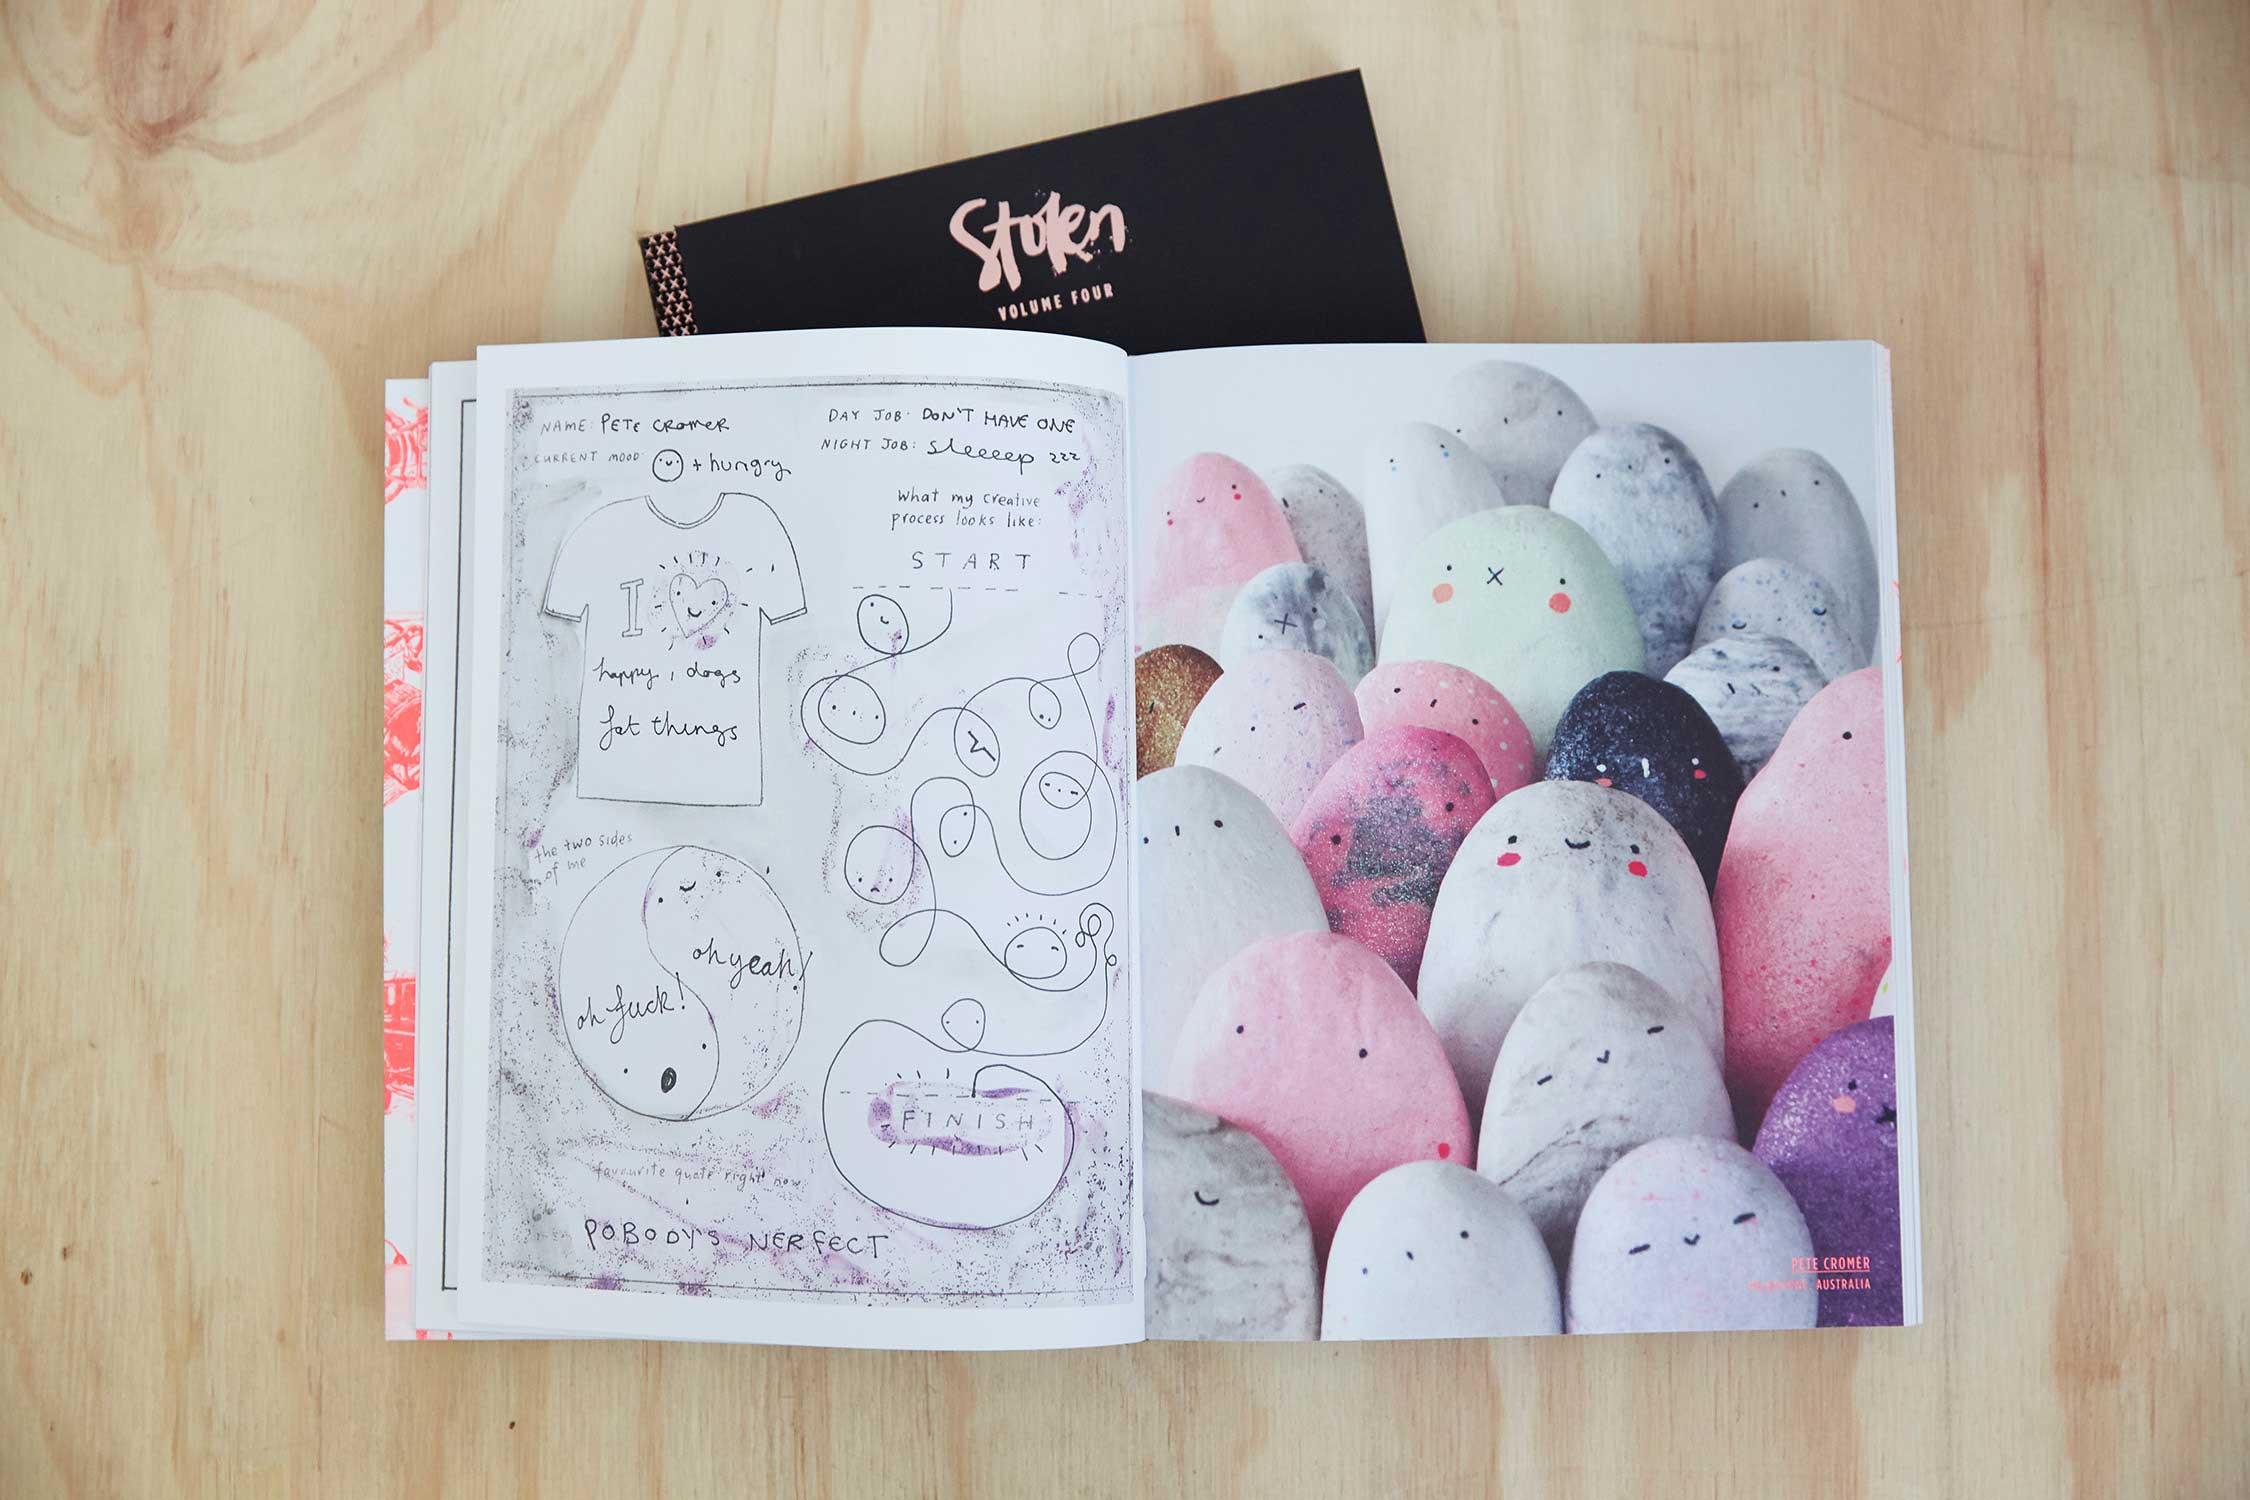 Stolen
VOLUME FOUR
NAME: PETE CROMER
CURRENT MOOD: + hungry
I
happy, dogs
fat things
DAY JOB: DON'T HAVE ONE
NIGHT JOB: sleeeep zzz
What my creative
process looks like:
START
FINISH
the two sides
of me
oh yeah!
oh fuck!
favourite quote right now
POBODY'S NERFECT
PETE CROMÉR
AUSTRALIA